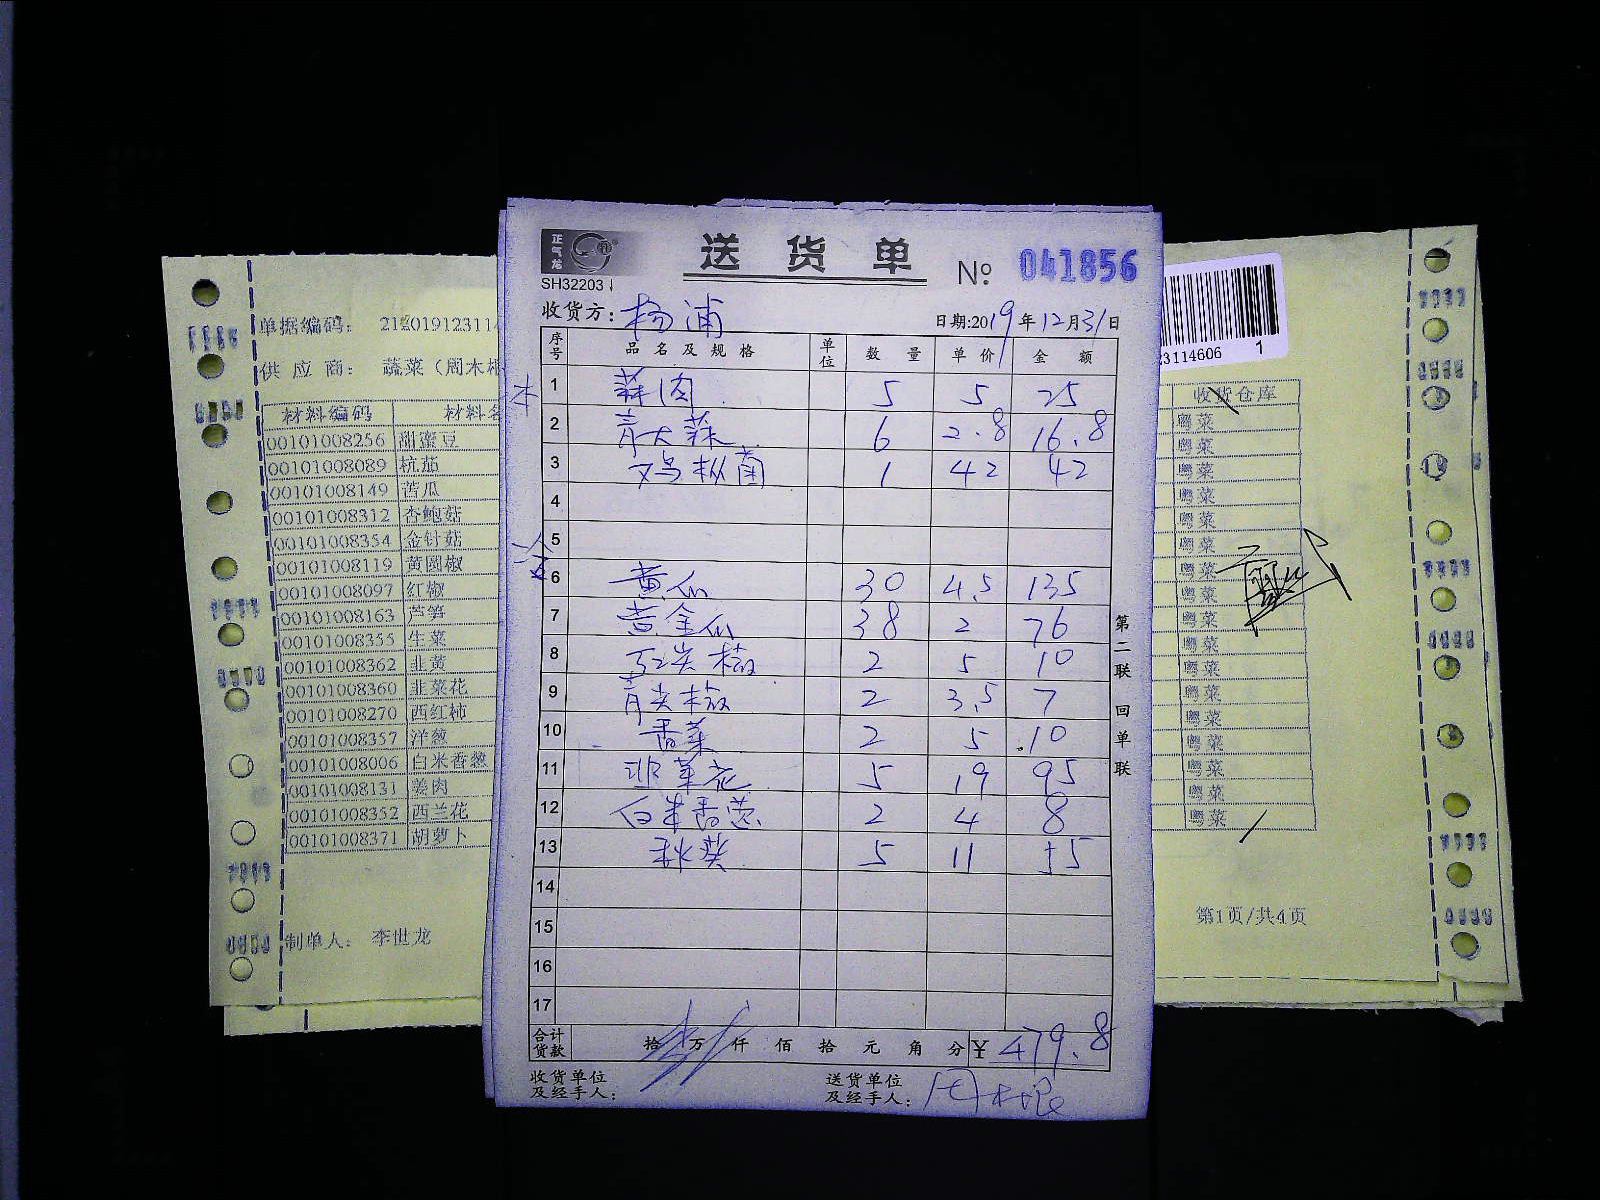 正气龙
送货单 № 041856
SH32203
收货方: 杨浦 日期:2019年12月31日
序号 品名及规格 单位 数量 单价 金额
本
1 蒜肉 5 5 25
2 青大蒜 6 2.8 16.8
3 鸡枞菌 1 42 42
4
5
6 黄瓜 30 4.5 135
7 黄金瓜 38 2 76
8 红尖椒 2 5 10
9 青尖椒 2 3.5 7
10 香菜 2 5 10
11 韭菜花 5 19 95
12 白米香葱 2 4 8
13 秋葵 5 11 55
14
15
16
17
合计货款 拾万仟佰拾元角分 ¥ 479.8
收货单位及经手人: 送货单位及经手人: 周木根
第二联 回单联
单据编码: 212019123114
供应商: 蔬菜（周木根
材料编码 材料名
00101008256 甜蜜豆
00101008089 杭茄
00101008149 苦瓜
00101008312 杏鲍菇
00101008354 金针菇
00101008119 黄圆椒
00101008097 红椒
00101008163 芦笋
00101008355 生菜
00101008362 韭黄
00101008360 韭菜花
00101008270 西红柿
00101008357 洋葱
00101008006 白米香葱
00101008131 姜肉
00101008352 西兰花
00101008371 胡萝卜
制单人: 李世龙
23114606 1
收货仓库
粤菜
粤菜
粤菜
粤菜
粤菜
粤菜
粤菜
粤菜
粤菜
粤菜
粤菜
粤菜
粤菜
粤菜
粤菜
粤菜
粤菜
第1页/共4页